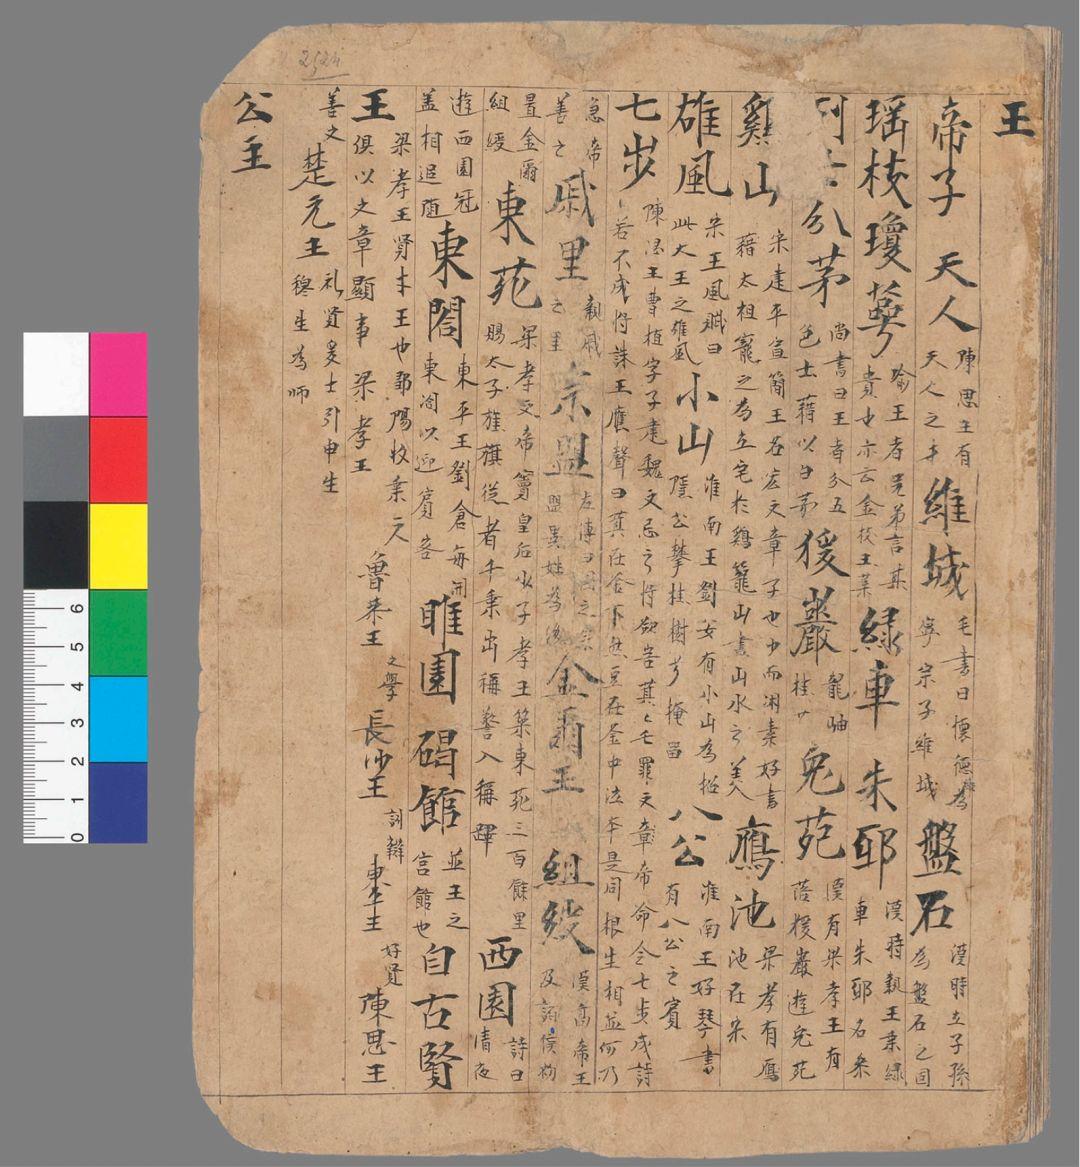 王
帝子 天人 陳思王有天人之才 維城 毛書曰懷德為寧宗子維城 盤石 漢時立子孫為盤石之固
瑶枝瓊萼 喻王者兄弟言其貴也亦云金枝玉葉 緑車朱邸 漢時親王乘緑車朱邸名
列士分茅 尚書曰王者分五色土藉以白茅 猨巖 龍岫桂 兔苑 漢有梁孝王有落猨巖遊兔苑
雞山 宋建平宣簡王名宏文章子也少而閑素好書藉太祖寵之為立宅於鷄籠山盡山水之美 鴈池 梁孝有鴈池池在宋
雄風 宋王風賦曰此大王之雄風 小山 淮南王劉安有小山為招隱公攀桂樹兮掩留 八公 淮南王好琴書有八公之賓
七步 陳思王曹植字子建魏文忌之將欲害其々七罪文章帝命令七步成詩若不成將誅王應聲曰萁在釜下燃豆在釜中泣本是同根生相煎何乃
急帝善之 戚里 親戚之里 宗盟 左傳曰周之宗盟異姓為後 金璽王 組綬 漢高帝王及諸侯初
置金璽組綬 東苑 梁孝文帝竇皇后少子孝王築東苑三百餘里賜太子旌旗從者千乘出稱警入稱蹕 西園 詩曰清夜
遊西園冠盖相追随 東閤 東平王劉倉每開東閤以迎賓客 睢園碣館 並王之宫館也 自古賢
王 梁孝王賢才王也鄒陽枚乘之俱以文章顯事梁孝王 魯恭王 之學 長沙王 訓辯 東平王 好賢 陳思王
善文 楚元王 礼賢爱士引申生穆生為師
公主